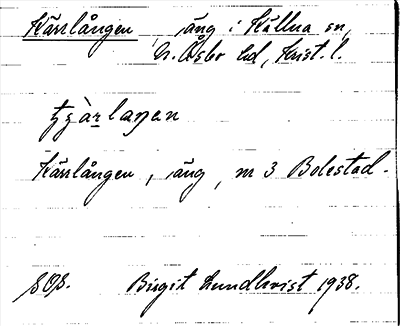 Kärrlången, äng i Källna sn,
N. Åsbo hd, Krist. l.
tʒàrlaŋen
Kärrlången, äng, nr 3 Bolestad.
SOS. Birgit Lundkvist 1938.